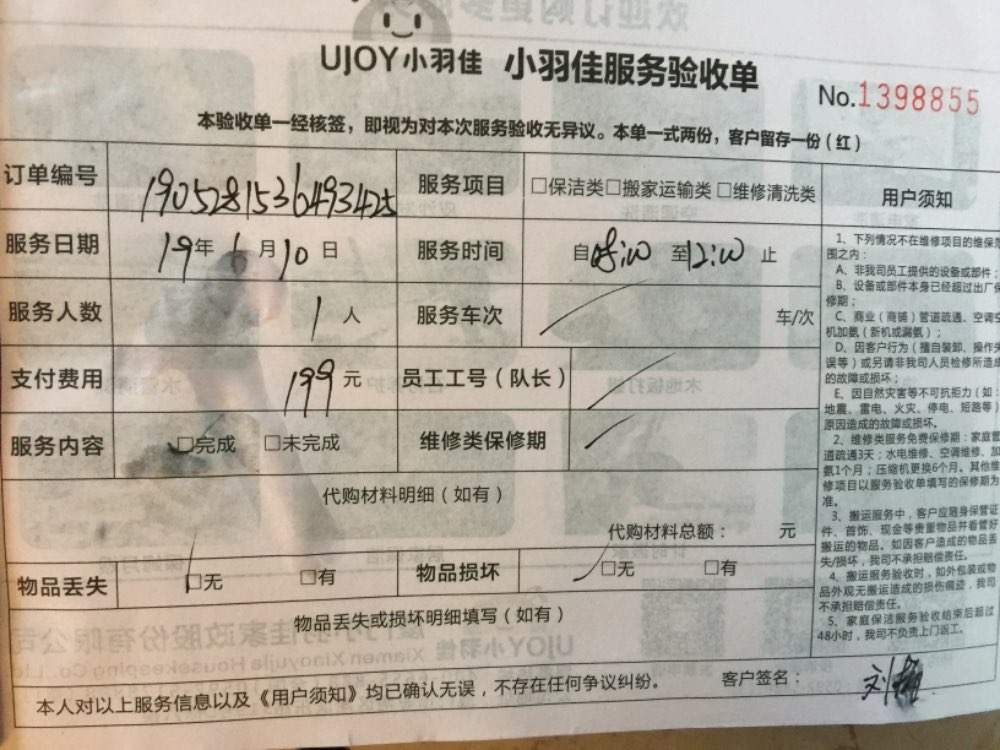 UJOY小羽佳 小羽佳服务验收单
No.1398855
本验收单一经核签，即视为对本次服务验收无异议。本单一式两份，客户留存一份（红）
订单编号 1905281536493425 服务项目 □保洁类□搬家运输类□维修清洗类
服务日期 19年 月10日 服务时间 自 :00 至12:00 止
服务人数 1 人 服务车次 车/次
支付费用 199元 员工工号（队长）
服务内容 □完成 □未完成 维修类保修期
代购材料明细（如有）
代购材料总额： 元
物品丢失 □无 □有 物品损坏 □无 □有
物品丢失或损坏明细填写（如有）
本人对以上服务信息以及《用户须知》均已确认无误，不存在任何争议纠纷。 客户签名： 刘
用户须知
1、下列情况不在维修项目的维保范
围之内：
A、非我司员工提供的设备或部件；
B、设备或部件本身已经超过出厂保
修期；
C、商业（商铺）管道疏通、空调空
机加氨（新机或漏氨）；
D、因客户行为（擅自装卸、操作失
误等）或另请非我司人员检修所造成
的故障或损坏；
E、因自然灾害等不可抗拒力（如：
地震、雷电、火灾、停电、短路等）
原因造成的故障或损坏。
2、维修类服务免费保修期：家庭管
道疏通3天；水电维修、空调维修、加
氨1个月；压缩机更换6个月。其他维
修项目以服务验收单填写的保修期为
准。
3、搬运服务中，客户应随身保管证
件、首饰、现金等贵重物品并看管好
搬运的物品。如因客户造成的物品丢
失/损坏，我司不承担赔偿责任。
4、搬运服务验收时，如外包装或物
品外观无搬运造成的损伤痕迹，我司
不承担赔偿责任。
5、家庭保洁服务验收结束后超过
48小时，我司不负责上门返工。